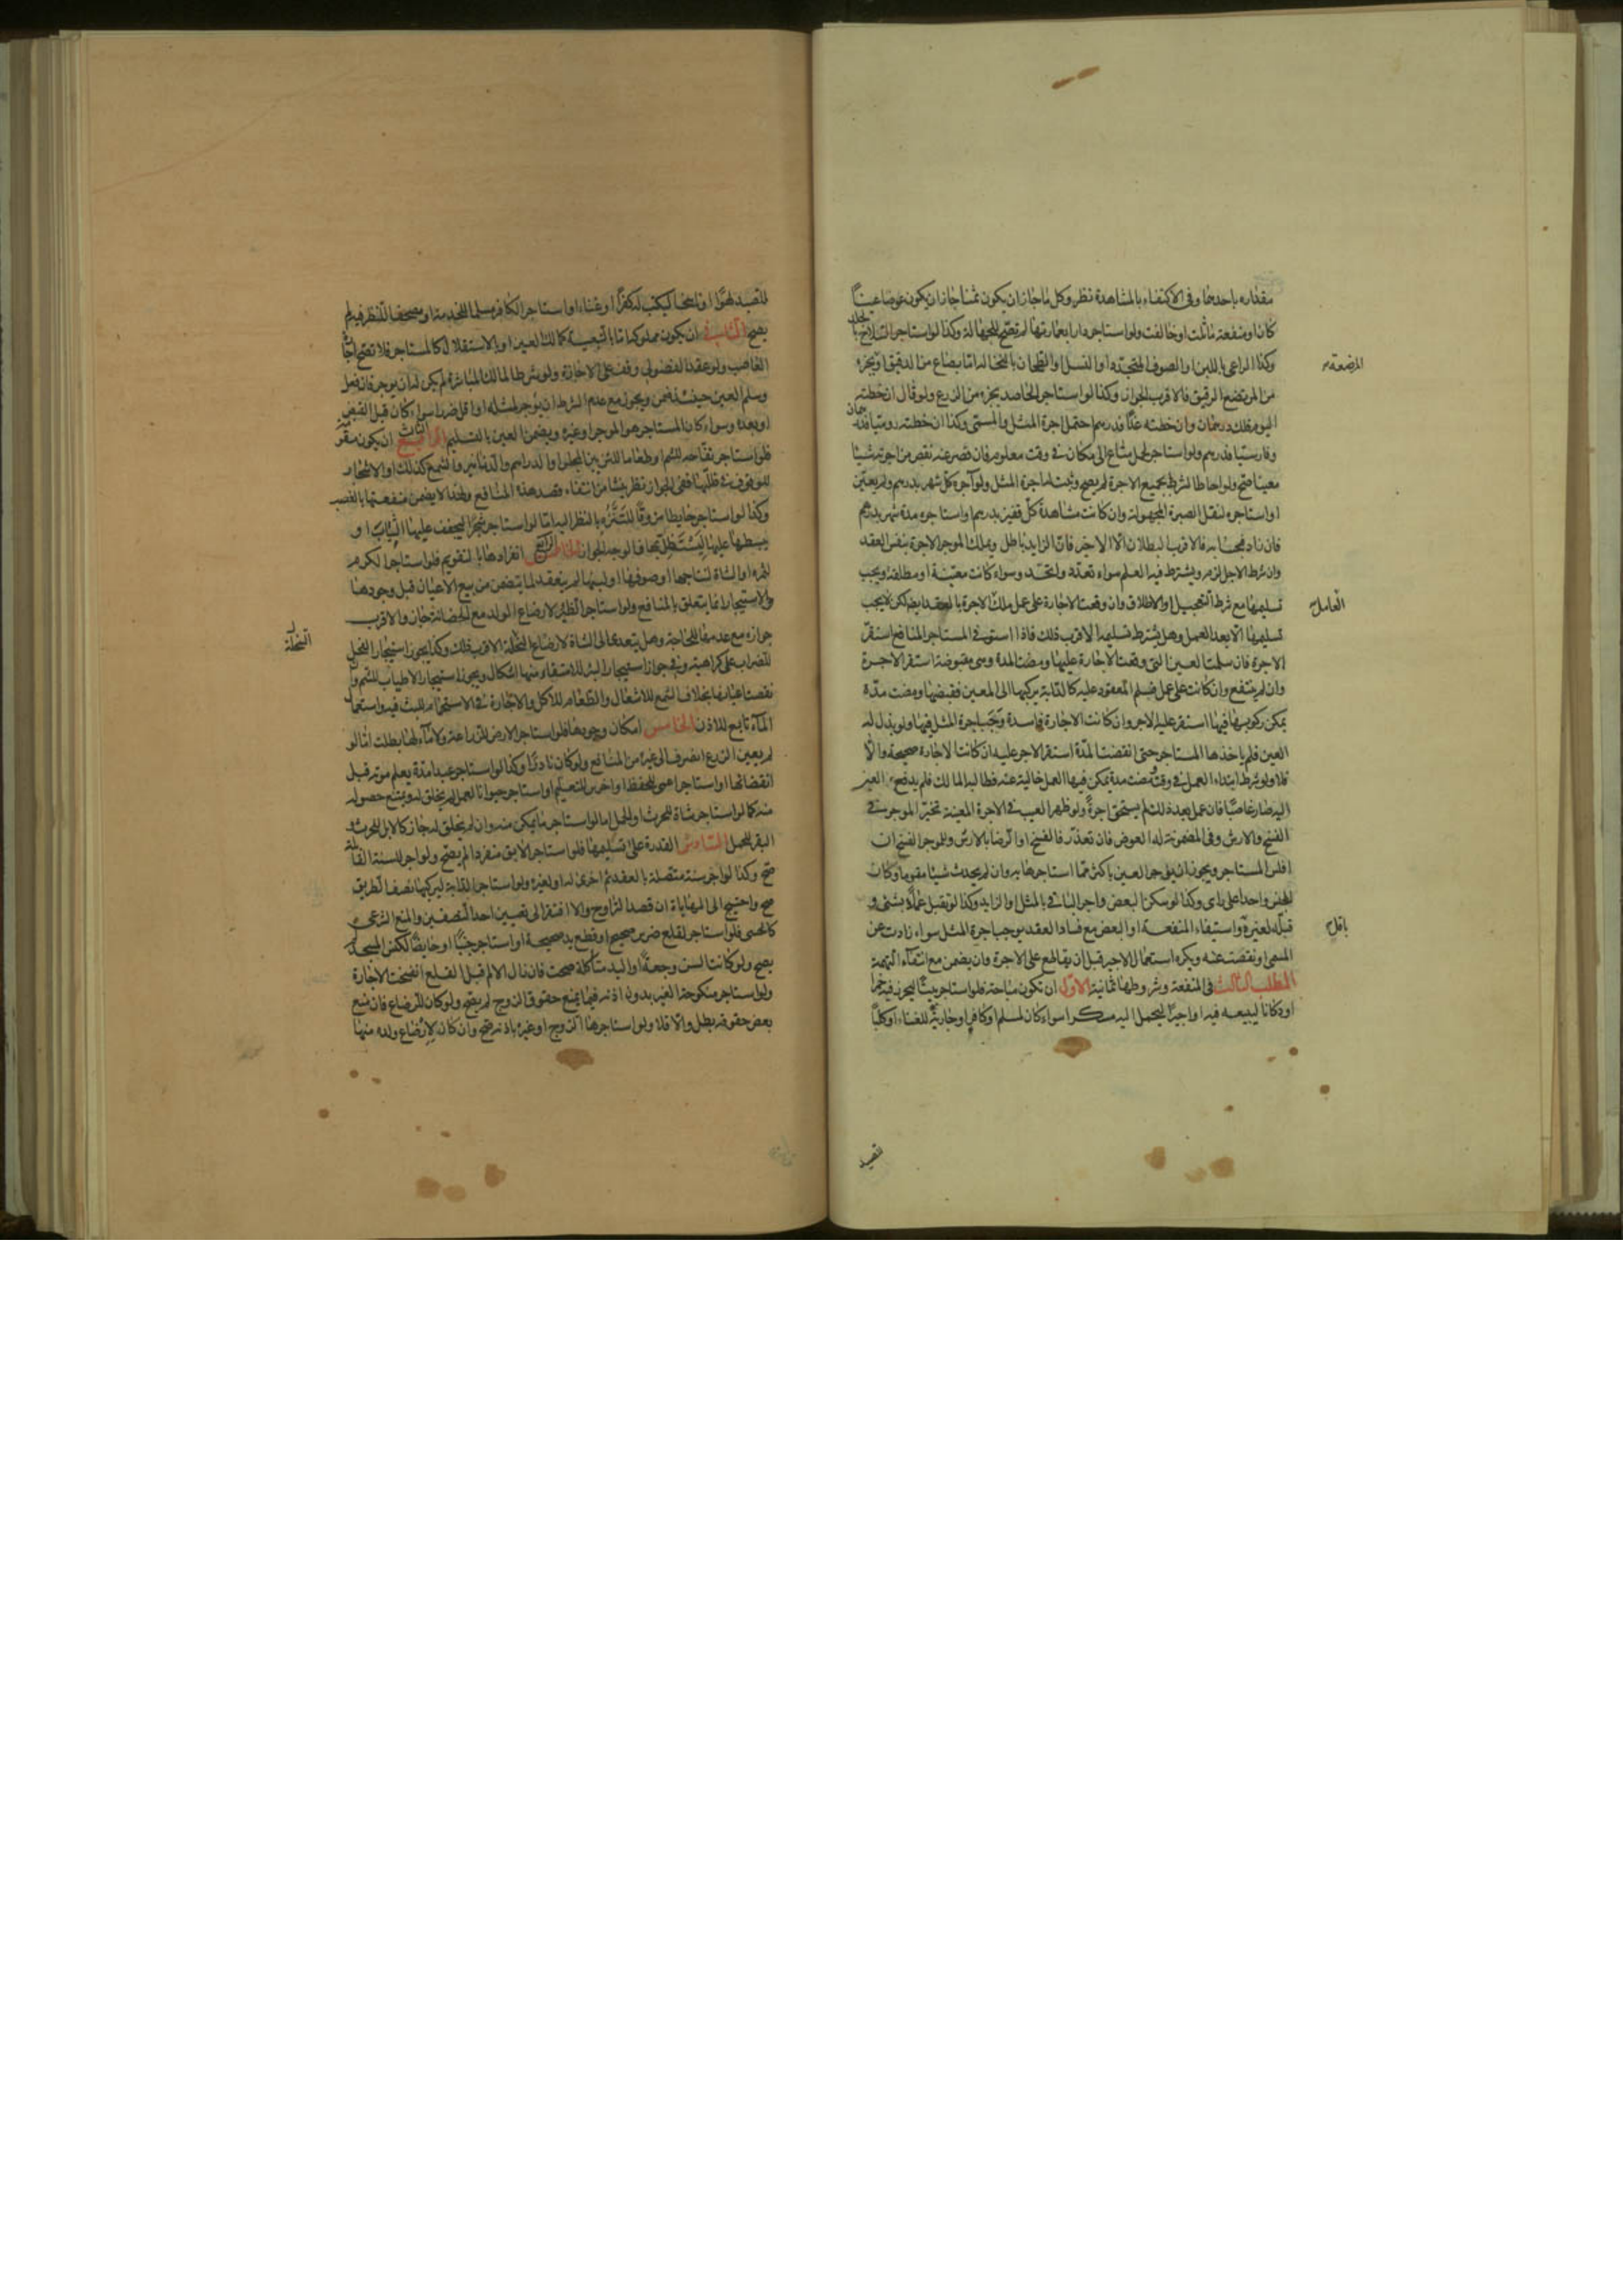 مقداره باحدهما وفى الاكتفاء بالمشاهدة نظر وكل ما جاز ان يكون ثمنا جاز ان يكون عوضا عينا
كان او منفعة ماثلت او خالفت ولو استاجر دارا بعمارتها لم تصح للجهالة وكذا لو استاجر السلاخ بالجلد
وكذا الراعى باللبن او الصوف المتجدد او النسل او الطحان بالنخالة اما بصاع من الدقيق او بجزء
المرضعة
من المرتضع الرقيق فالاقرب الجواز وكذا لو استاجر الحاصد بجزء من الزرع ولو قال ان خطته
اليوم فلك درهمان وان خطته غدا فدرهم احتمل اجرة المثل والمسمى وكذا ان خطته روميا فدرهمان
وفارسيا فدرهم ولو استاجر لحمل متاع الى مكان فى وقت معلوم فان قصر عنه نقص من اجرته شيئا
معينا صح ولو احاط الشرط بجميع الاجرة لم يصح وثبت لها اجرة المثل ولو آجره كل شهر بدرهم ولم يعين
او استاجره لنقل الصبرة المجهولة وان كانت مشاهدة كل قفيز بدرهم او استاجره مدة شهر بدرهم
فان زاد فبحسابه فالاقرب البطلان الا الاخير فان الزايد باطل ويملك الموجر الاجرة بنفس العقد
وان شرط الاجل لزم ويشترط فيه العلم سواء تعدد او اتحد وسواء كانت معينة او مطلقة ويجب
تسليمها مع شرط التعجيل او الاطلاق وان وقعت الاجارة على عمل ملك العامل الاجرة بالعقد ايضا لكن لا يجب
تسليمها الا بعد العمل وهل يشترط تسليمه الاقرب ذلك فاذا استوفى المستاجر المنافع استقر
الاجرة فان سلمت العين التى وقعت الاجارة عليها ومضت المدة وهى مقبوضة استقر الاجرة
وان لم ينتفع وان كانت على عمل فسلم المعقود عليه كالدابة يركبها الى المعين فقبضها ومضت مدة
يمكن ركوبها فيها استقر عليه الاجر وان كانت الاجارة فاسدة وجب اجرة المثل فيها ولو بذل له
العين فلم ياخذها المستاجر حتى انقضت المدة استقر الاجر عليه ان كانت الاجارة صحيحة والا
فلا ولو شرط ابتداء العمل فى وقت ومضت مدة يمكن فيها العمل خالية عنه فطالبه المالك فلم يدفع العين
اليه صار غاصبا فان عمل بعد ذلك لم يستحق اجرة ولو ظهر العيب فى الاجرة المعينة تخير الموجر فى
الفسخ والارش وفى المضمونة له العوض فان تعذر فالفسخ او الرضا بالارش وللموجر الفسخ ان
افلس المستاجر ويجوز ان يوجر العين باكثر مما استاجرها به وان لم يحدث شيئا مقوما وكان
الجنس واحدا على راى وكذا لو سكن البعض واجر الباقى بالمثل او الزايد وكذا لو تقبل عملا بشئ و
قبله لغيره باقل واستيفاء المنفعة او البعض مع فساد العقد يوجب اجرة المثل سواء زادت عن
المسمى او نقصت عنه ويكره استعمال الاجير قبل ان يقاطع على الاجرة وان يضمن مع انتفاء التهمة
المطلب الثالث فى المنفعة وشروطها ثمانية الاول ان تكون مباحة فلو استاجر بيتا ليحرز فيه خمرا
او دكانا ليبيعه فيه او اجيرا ليحمل اليه مسكرا سواء كان لمسلم او كافر او جارية للغناء او كلبا
للصيد
للصيد لهوا او ناسخا ليكتب له كفرا او غناء او استاجر الكافر مسلما للخدمة او مصحفا للنظر فيه لم
يصح الثانى ان يكون مملوكة اما بالتبعية كمالك العين او بالاستقلال كالمستاجر فلا تصح اجارة
الغاصب ولو عقد الفضولى وقف على الاجازة ولو شرط المالك المباشرة لم يكن له ان يوجر فان فعل
وسلم العين حينئذ ضمن ويجوز مع عدم الشرط ان يوجر لمثله او اقل ضررا سواء كان قبل القبض
او بعده وسواء كان المستاجر هو الموجر او غيره ويضمن العين بالتسليم الثالث ان يكون متقومة
فلو استاجر تفاحة للشم او طعاما لتزيين المجلس او الدراهم والدنانير والشمع كذلك او الاشجار
للوقوف فى ظلها ففى الجواز نظر ينشا من انتفاء قصد هذه المنافع ولهذا لا يضمن منفعتها بالغصب
وكذا لو استاجر حايطا مزوقا للتنزه بالنظر اليه اما لو استاجر شجرا ليجفف عليها الثياب او
يبسطها عليها ليستظل تحتها فالوجه الجواز الرابع انفرادها بالتقويم فلو استاجر الكرم
لثمره او الشاة لنتاجها او صوفها او لبنها لم ينعقد لما يتضمن من بيع الاعيان قبل وجودها
والاستيجار انما يتعلق بالمنافع ولو استاجر الظئر لارضاع الولد مع الحضانة جاز والاقرب
جوازه مع عدمها للحاجة وهل يتعدى الى الشاة لارضاع السخلة الاقرب ذلك وكذا يجوز استيجار الفحل
السخلة
للضراب على كراهية وفى جواز استيجار البئر للاستقاء منها اشكال ويجوز استيجار الاطياب للشم وان
نقصت اعيانها بخلاف الشمع للاشعال والطعام للاكل والاجارة فى الاستحمام للبث فيه واستعمال
الماء تابع للاذن الخامس امكان وجودها فلو استاجر الارض للزراعة ولا ماء لها بطلت اما لو
لم يعين الزرع انصرف الى غيره من المنافع ولو كان نادرا وكذا لو استاجر عبدا مدة يعلم موته قبل
انقضائها او استاجر اعمى للحفظ او اخرس للتعليم او استاجر حيوانا لعمل لم يخلق له ويمتنع حصوله
منه كما لو استاجر شاة للحرث او الحمل اما لو استاجر ما يمكن منه وان لم يخلق له جاز كالابل للحرث و
البقر للحمل السادس القدرة على تسليمها فلو استاجر الابق منفردا لم يصح ولو اجر للسنة القابلة
صح وكذا لو اجر سنة متصلة بالعقد ثم اخرى له او لغيره ولو استاجر الدابة ليركبها نصف الطريق
صح واحتيج الى المهاياة ان قصد التراوح والا افتقر الى تعيين احد النصفين والمنع الشرعى
كالحسى فلو استاجر لقلع ضرس صحيح او قطع يد صحيحة او استاجر جنبا او حايضا لكنس المسجد لم
يصح ولو كانت السن وجعة او اليد متاكلة صحت فان زال الالم قبل القلع انفسخت الاجارة
ولو استاجر منكوحة الغير بدون اذنه فيما يمنع حقوق الزوج لم يصح ولو كان للرضاع فان منع
بعض حقوقه بطل والا فلا ولو استاجرها الزوج او غيره باذنه صح وان كان لارضاع ولده منها